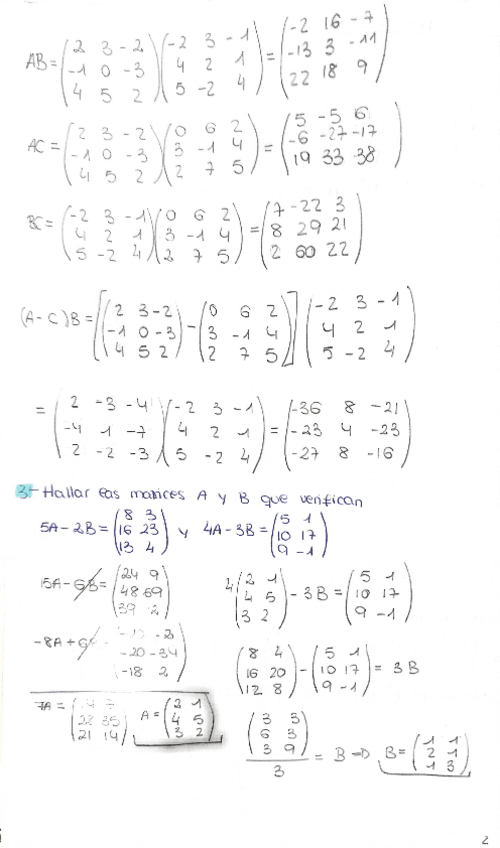 AB = (2 3 -2 / -1 0 -3 / 4 5 2) (-2 3 -1 / 4 2 1 / 5 -2 4) = (-2 16 -7 / -13 3 -11 / 22 18 9)
AC = (2 3 -2 / -1 0 -3 / 4 5 2) (0 6 2 / 3 -1 4 / 2 7 5) = (5 -5 6 / -6 -27 -17 / 19 33 38)
BC = (-2 3 -1 / 4 2 1 / 5 -2 4) (0 6 2 / 3 -1 4 / 2 7 5) = (7 -22 3 / 8 29 21 / 2 60 22)
(A-C)B = [(2 3 -2 / -1 0 -3 / 4 5 2) - (0 6 2 / 3 -1 4 / 2 7 5)] (-2 3 -1 / 4 2 1 / 5 -2 4)
= (2 -3 -4 / -4 1 -7 / 2 -2 -3) (-2 3 -1 / 4 2 1 / 5 -2 4) = (-36 8 -21 / -23 4 -23 / -27 8 -16)
3- Hallar las matrices A y B que verifican
5A - 2B = (8 3 / 16 23 / 13 4) y 4A - 3B = (5 1 / 10 17 / 9 -1)
15A - 6B = (24 9 / 48 69 / 39 2)
-8A + 6 -2 / -20 -34 / -18 2)
7A = ( 7 / 35 / 21 14) A = (2 1 / 4 5 / 3 2)
4(2 1 / 4 5 / 3 2) - 3B = (5 1 / 10 17 / 9 -1)
(8 4 / 16 20 / 12 8) - (5 1 / 10 17 / 9 -1) = 3B
(3 3 / 6 3 / 3 9) / 3 = B => B = (1 1 / 2 1 / 1 3)
2